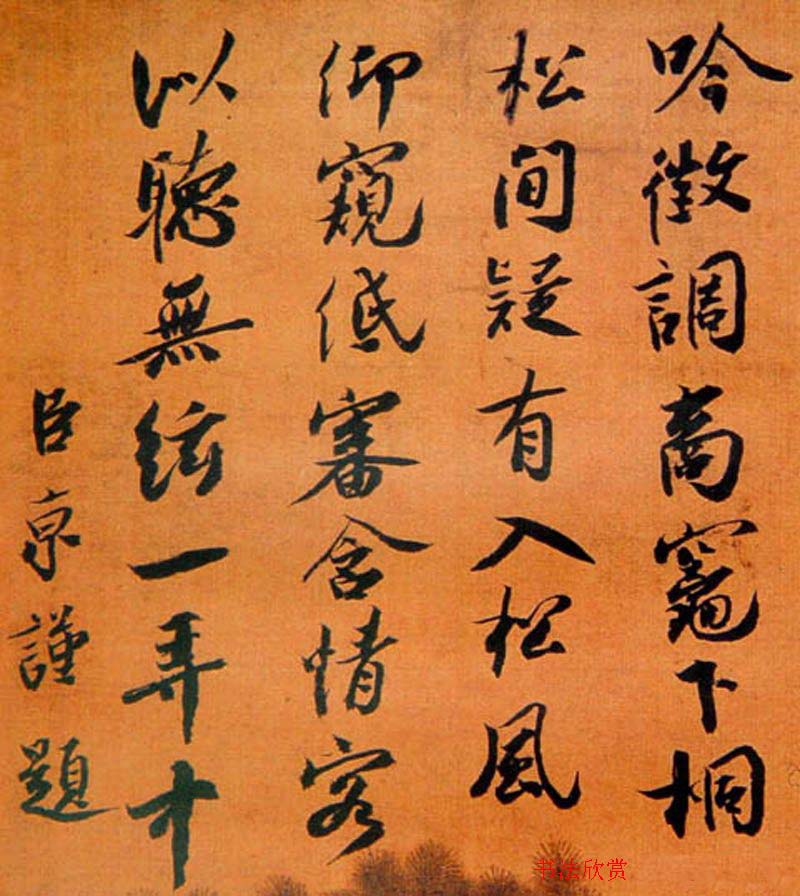 吟徵調商竈下桐
松間疑有入松風
仰窺低審含情客
以聽無絃一弄中
臣京謹題
书法欣赏